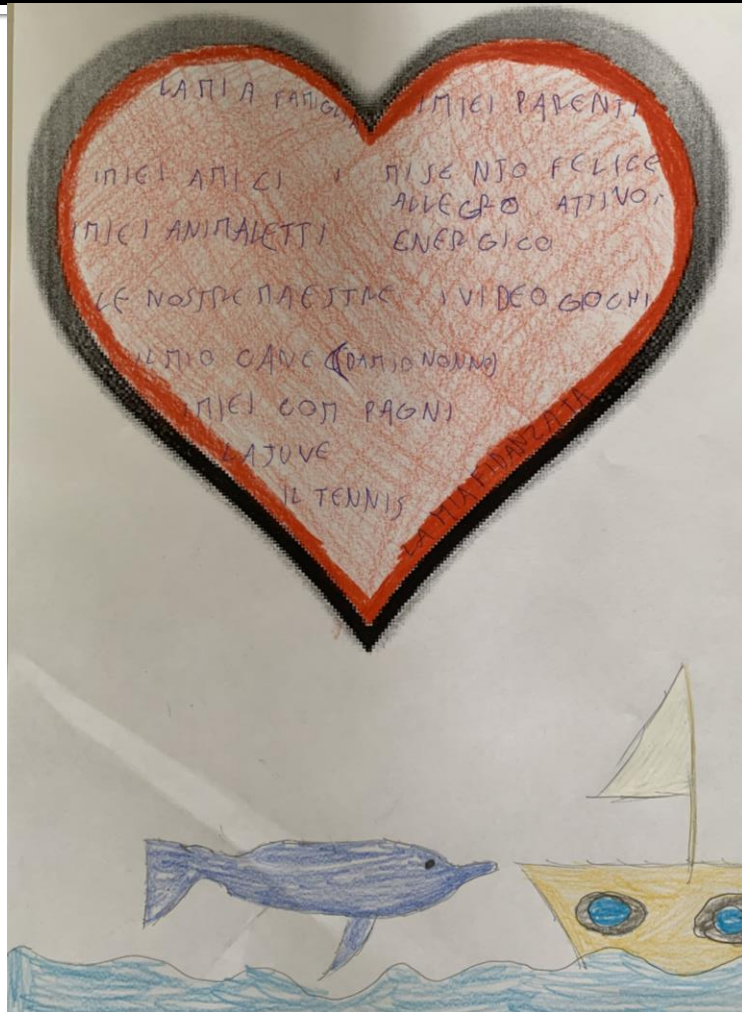 LA MIA FAMIGLIA
I MIEI PARENTI
I MIEI AMICI
MI SENTO FELICE
ALLEGRO ATTIVO,
ENERGICO
I MIEI ANIMALETTI
LE NOSTRE MAESTRE
I VIDEO GIOCHI
IL MIO CANE (DA MIO NONNO)
I MIEI COMPAGNI
LA JUVE
IL TENNIS
LA MIA FIDANZATA